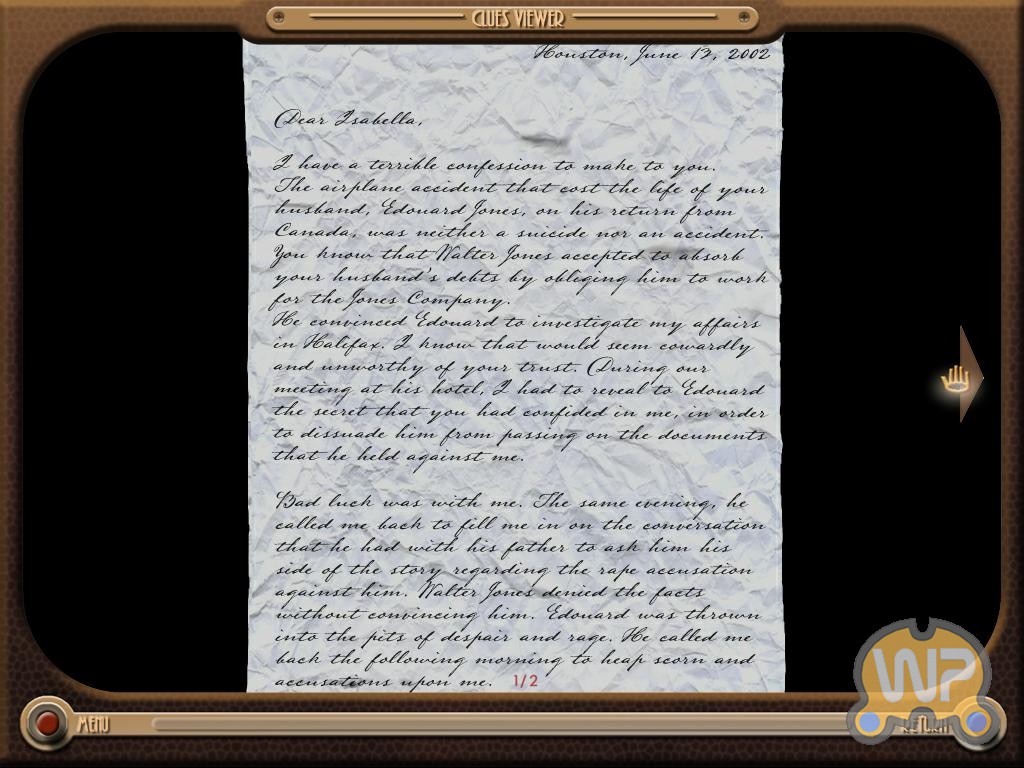 CLUES VIEWER
Houston, June 13, 2002
Dear Isabella,
I have a terrible confession to make to you.
The airplane accident that cost the life of your
husband, Edouard Jones, on his return from
Canada, was neither a suicide nor an accident.
You know that Walter Jones accepted to absorb
your husband's debts by obliging him to work
for the Jones Company.
He convinced Edouard to investigate my affairs
in Halifax. I know that would seem cowardly
and unworthy of your trust. During our
meeting at his hotel, I had to reveal to Edouard
the secret that you had confided in me, in order
to dissuade him from passing on the documents
that he held against me.
Bad luck was with me. The same evening, he
called me back to fill me in on the conversation
that he had with his father to ask him his
side of the story regarding the rape accusation
against him. Walter Jones denied the facts
without convincing him. Edouard was thrown
into the pits of despair and rage. He called me
back the following morning to heap scorn and
accusations upon me.
1/2
WP
MENU
RETURN